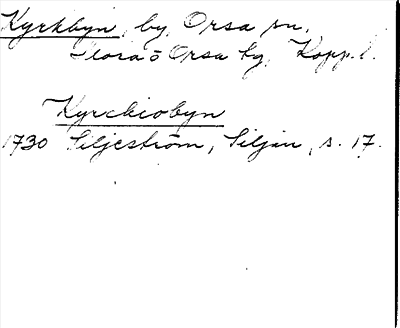 Kyrkbyn, by, Orsa sn,
Mora o Orsa tg, Kopp. l.
Kyrckiobyn
1730 Siljeström, Siljan, s. 17.